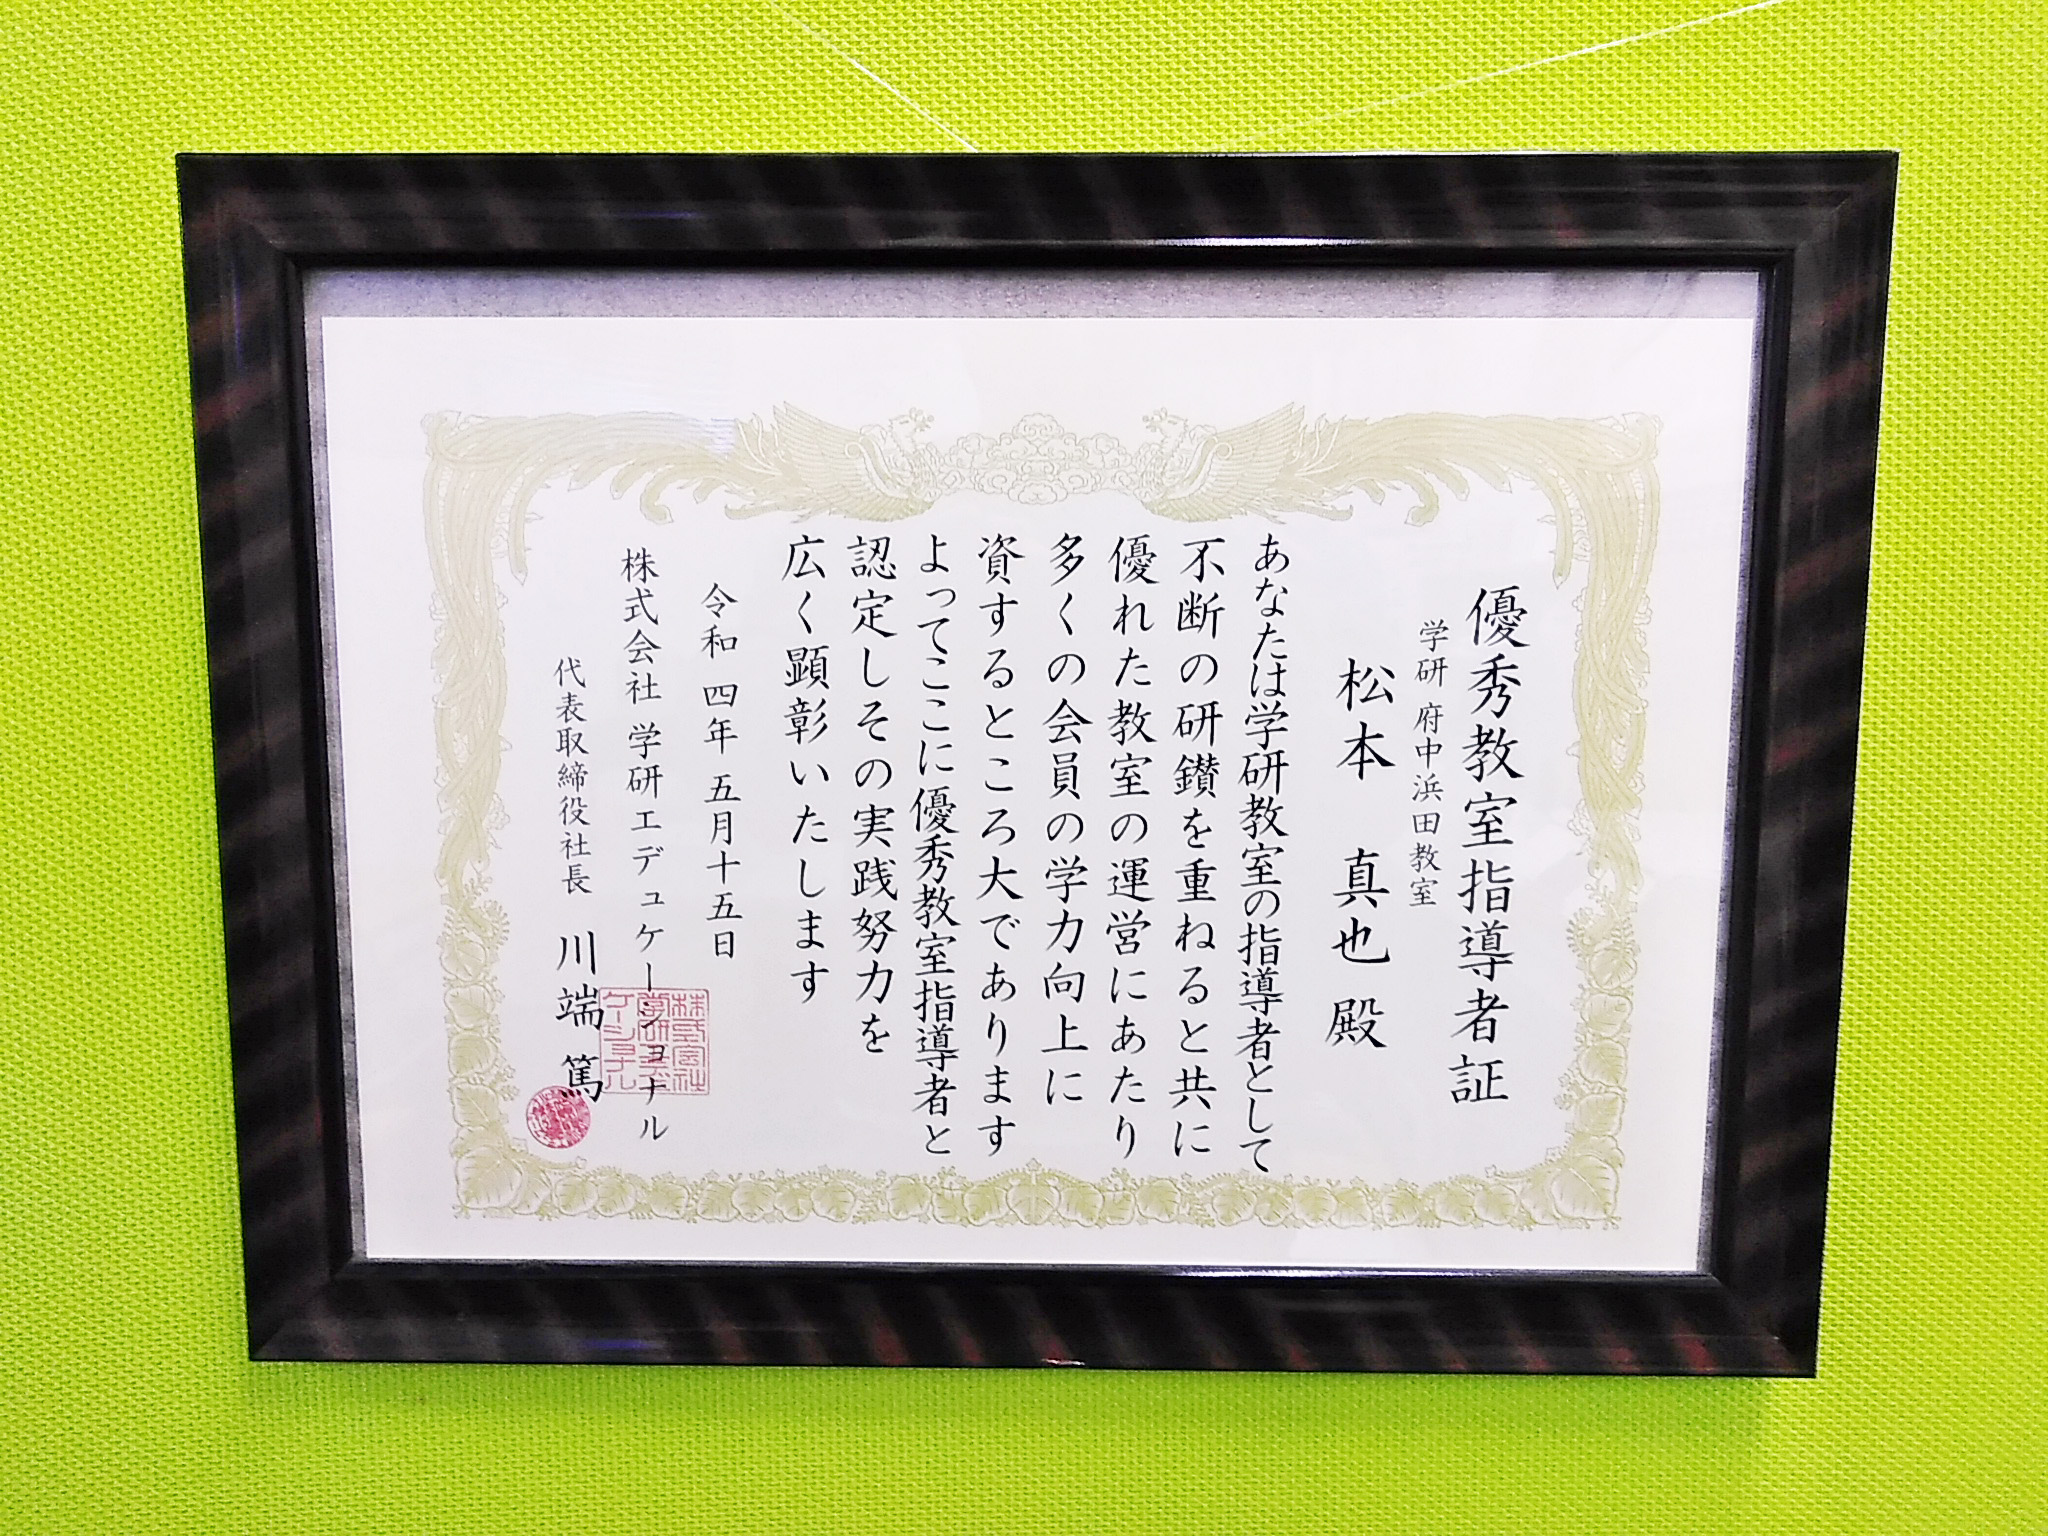 優秀教室指導者証
学研 府中浜田教室
松本 真也 殿
あなたは学研教室の指導者として
不断の研鑚を重ねると共に
優れた教室の運営にあたり
多くの会員の学力向上に
資するところ大であります
よってここに優秀教室指導者と
認定しその実践努力を
広く顕彰いたします
令和 四年 五月十五日
株式会社 学研エデュケーショナル
代表取締役社長 川端 篤
株式会社
学研エデュ
ケーショナル